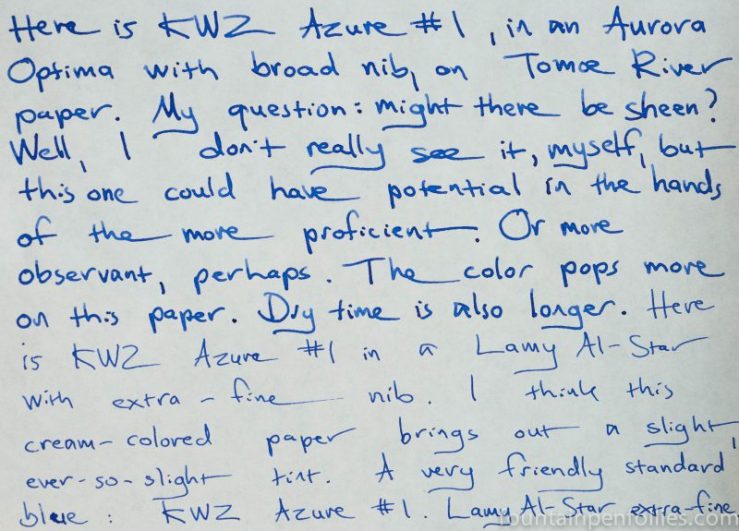 Here is KWZ Azure #1, in an Aurora
Optima with broad nib, on Tomoe River
paper. My question: might there be sheen?
Well, I don't really see it, myself, but
this one could have potential in the hands
of the more proficient. Or more
observant, perhaps. The color pops more
on this paper. Dry time is also longer. Here
is KWZ Azure #1 in a Lamy Al-Star
with extra-fine nib. I think this
cream-colored paper brings out a slight,
ever-so-slight tint. A very friendly standard
blue: KWZ Azure #1. Lamy Al-Star extra-fine
fountainpenfollies.com